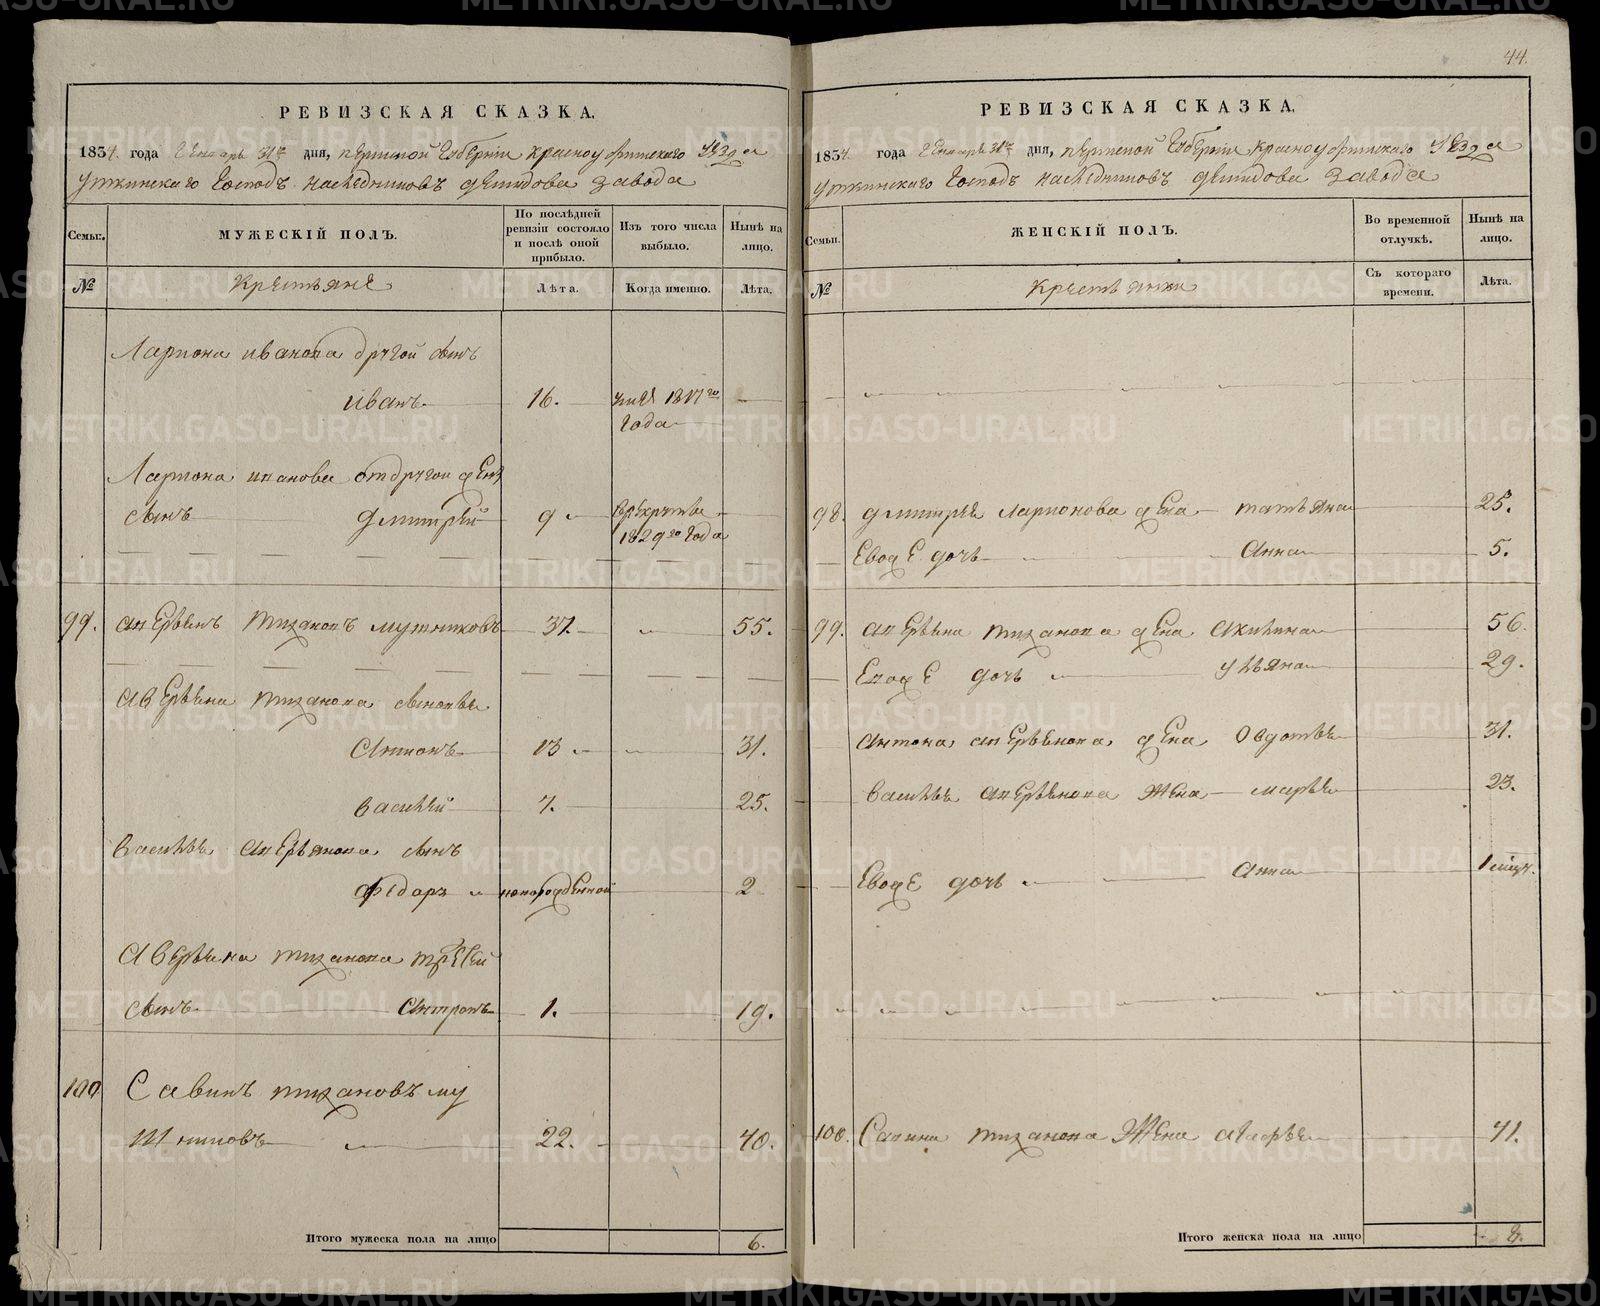 РЕВИЗСКАЯ СКАЗКА.
1834. года Генваря 31го дня, Пермской Губернии Красноуфимского уезда
Уткинского Господъ наследниковъ Демидова завода
Семьи. МУЖЕСКІЙ ПОЛЪ. По послѣдней ревизіи состояло и послѣ оной прибыло. Изъ того числа выбыло. Нынѣ на лицо.
№ Крестьяне Лѣта. Когда именно. Лѣта.
Лариона Иванова другой сынъ
Иванъ 16. 1817го года
Лариона Иванова от другой жены
сынъ Дмитрей 9 в рекруты 1829го года
99. Аверьянъ Тихановъ Мутниковъ 37. 55.
Аверьяна Тиханова сыновья
Антонъ 13 31.
Василей 7. 25.
Василья Аверьянова сынъ
Федоръ новорожденной 2
Аверьяна Тиханова третей
сынъ Антропъ 1. 19.
100 Савинъ Тихановъ Му
тниковъ 22. 40.
Итого мужеска пола на лицо 6.
44.
РЕВИЗСКАЯ СКАЗКА.
1834. года Генваря 31го дня, Пермской Губернии Красноуфимского уезда
Уткинского Господъ наследниковъ Демидова завода
Семьи. ЖЕНСКІЙ ПОЛЪ. Во временной отлучкѣ. Нынѣ на лицо.
№ Крестьянки Съ котораго времени. Лѣта.
98. Дмитрея Ларионова жена Татьяна 25.
Евоже дочь Анна 5.
99. Аверьяна Тиханова жена Акилина 56.
Евоже дочь Ульяна 29.
Антона Аверьянова жена Овдотья 31.
Василья Аверьянова жена Марья 23.
Евоже дочь Анна 1
100. Савина Тиханова жена Агафья 41.
Итого женска пола на лицо 8.
METRIKI.GASO-URAL.RU